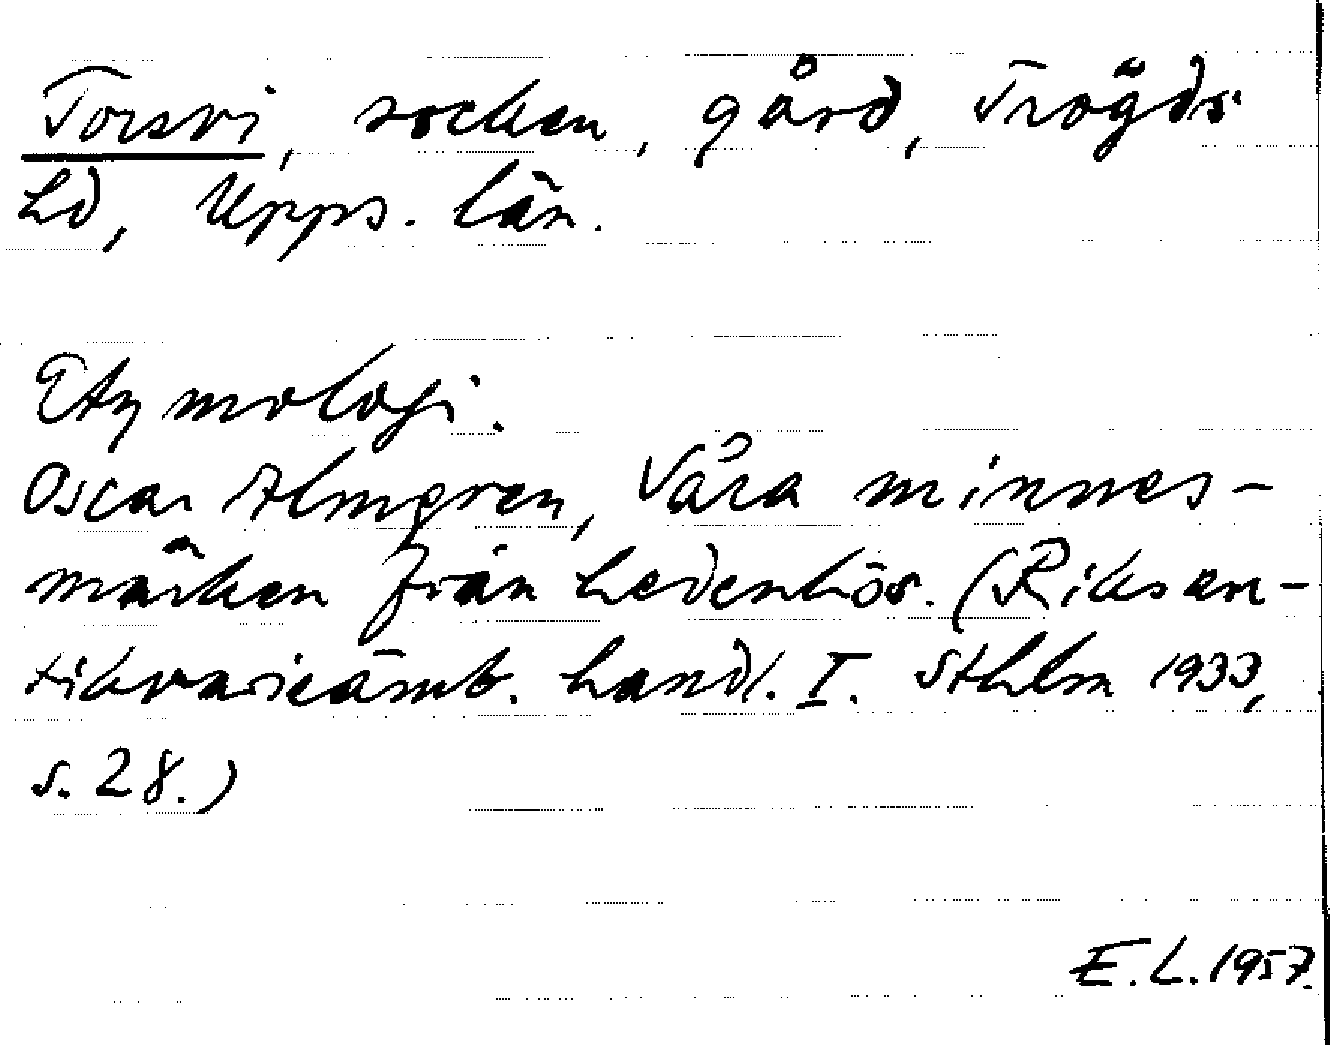 Torsvi, socken, gård, Trögds
hd, Upps. län.
Etymologi.
Oscar Almgren, Våra minnes-
märken från hedenhös. (Riksan-
tikvarieämb. handl. I. Sthlm 1933,
s. 28.)
E. L. 1957.